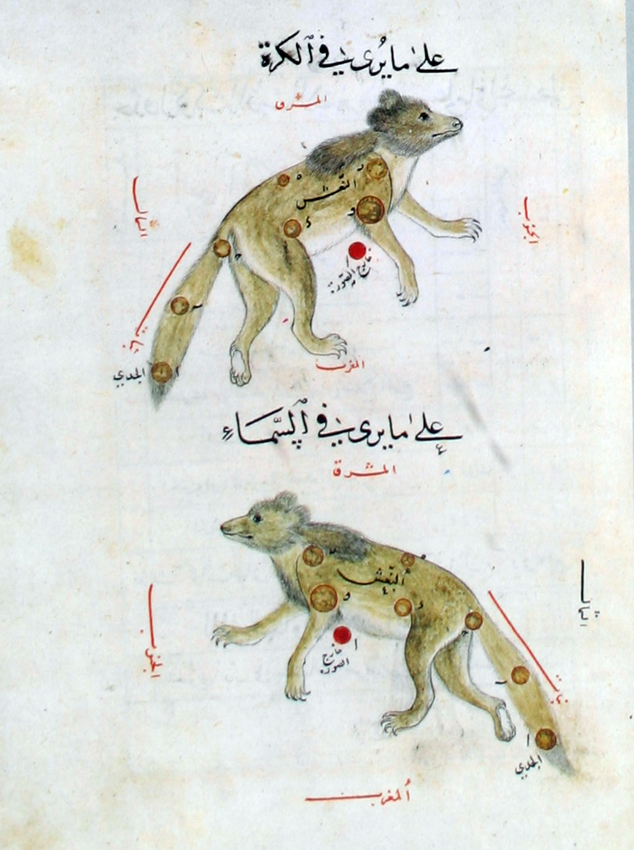 على ما يُرى في الكرة
المشرق
الشمال
الجنوب
النعش
ه
و
د
ج
ا
خارج
الصورة
بنات
ب
ا
الجدي
المغرب
على ما يرى في السَّماء
المشرق
النعش
و
د
ج
الشمال
الجنوب
ا
خارج
الصورة
بنات
ب
ا
الجدي
المغرب